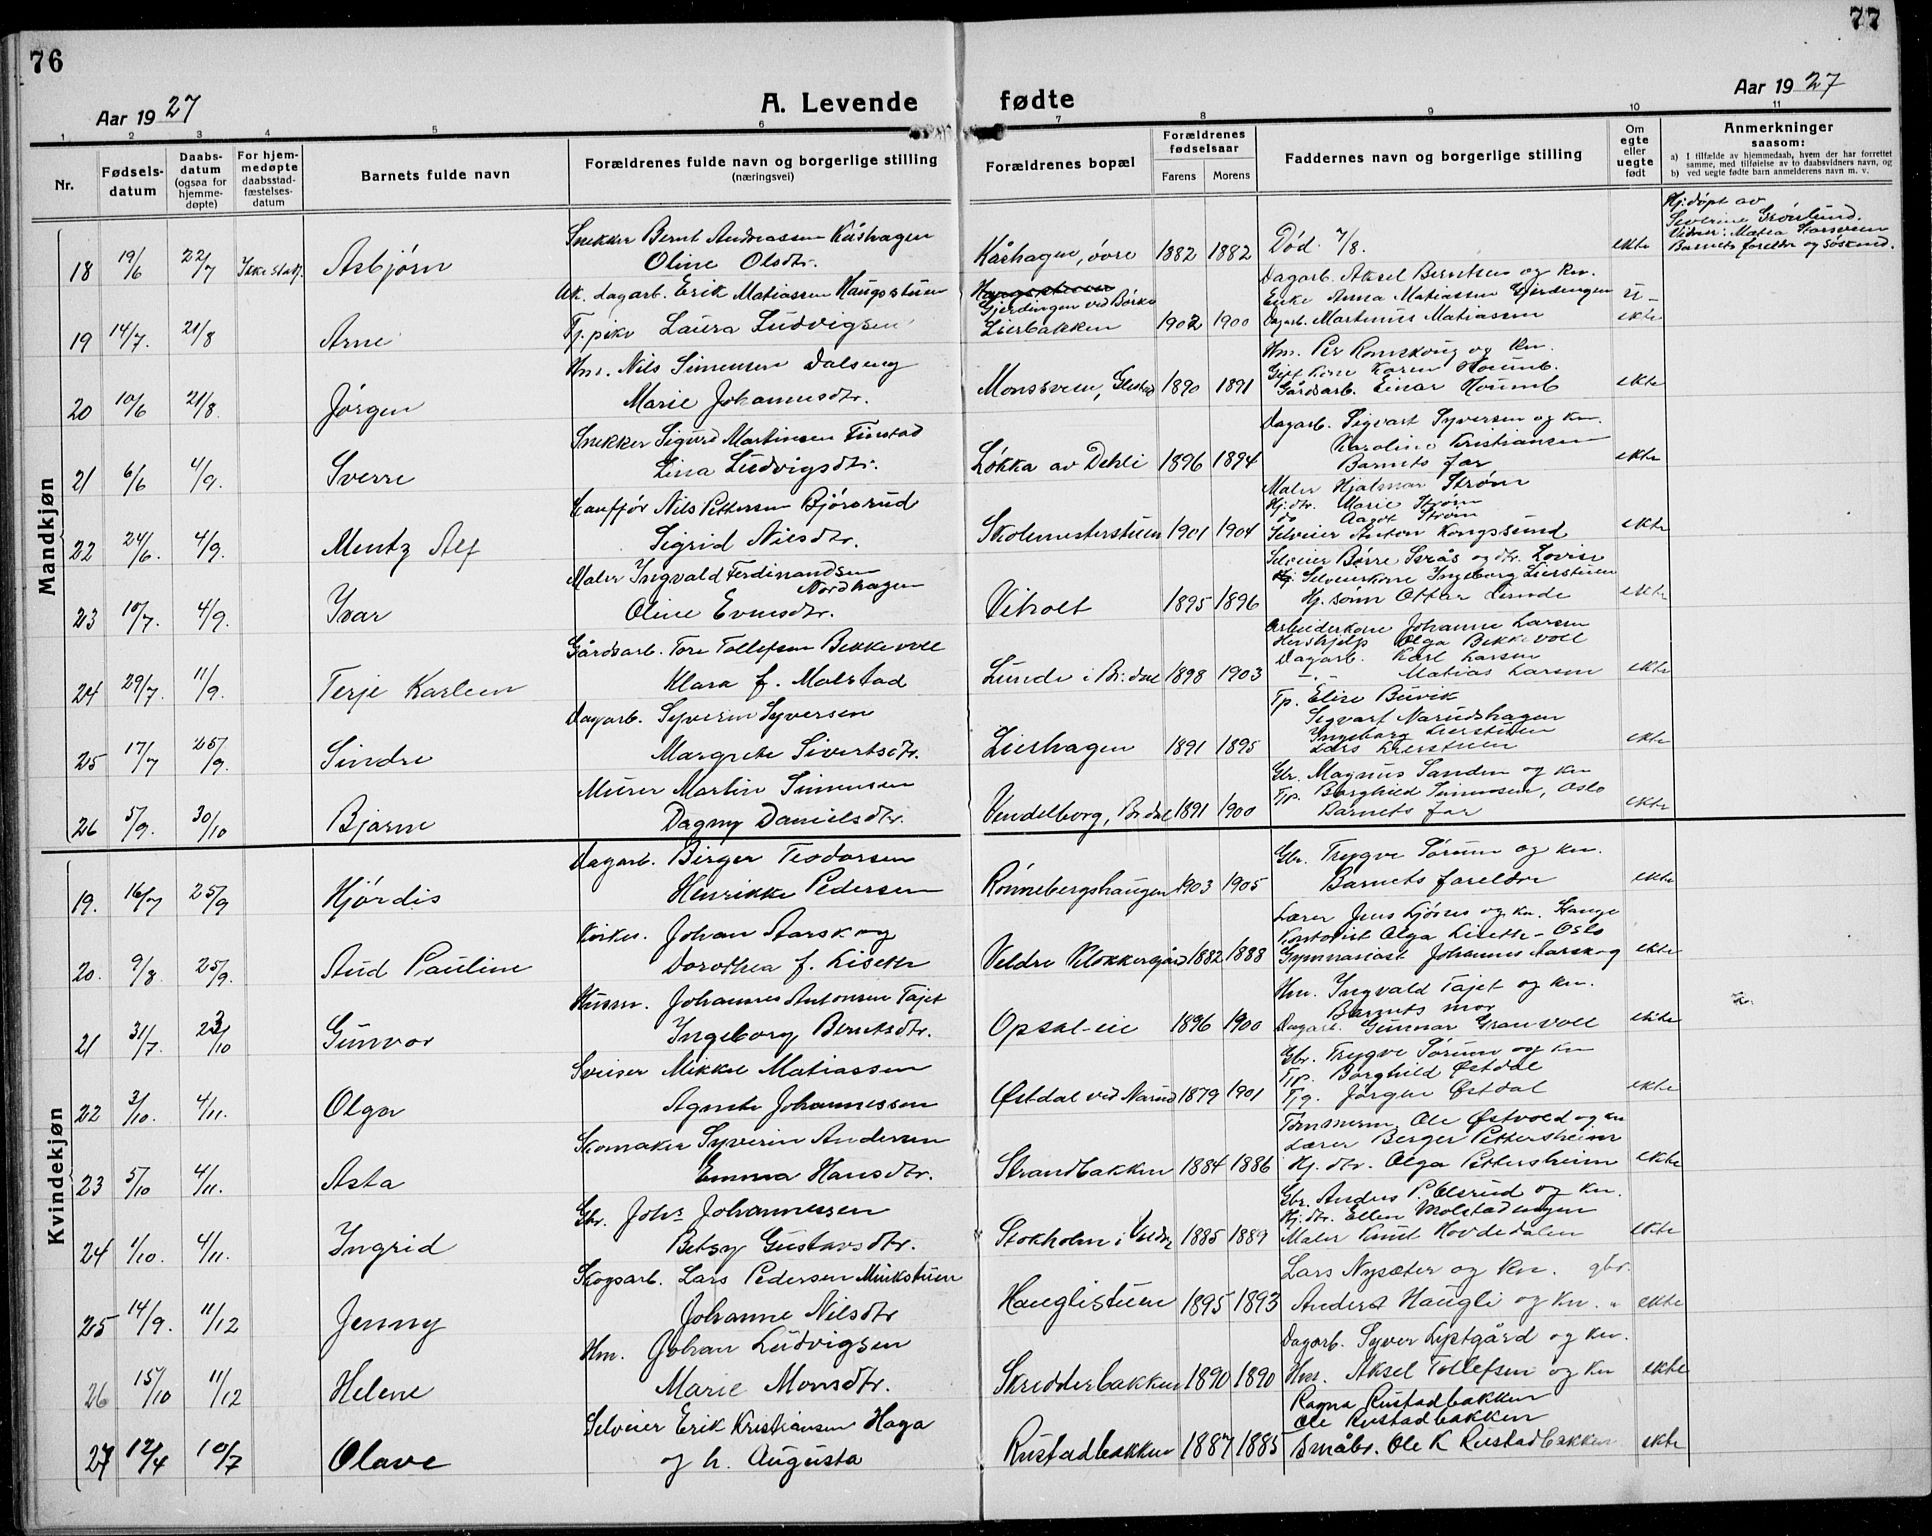 76
77
Aar 1927
A. Levende
fødte
Aar 1927
1 2 3 4 5 6 7 8 9 10 11
Nr.
Fødsels-
datum
Daabs-
datum
(ogsaa for
hjemme-
døpte)
For hjem-
medøpte
daabsstad-
fæstelses-
datum
Barnets fulde navn
Forældrenes fulde navn og borgerlige stilling
(næringsvei)
Forældrenes bopæl
Forældrenes
fødselsaar
Farens Morens
Faddernes navn og borgerlige stilling
Om
egte
eller
uegte
født
Anmerkninger
saasom:
a) I tilfælde av hjemmedaab, hvem der har forrettet
samme, med tilføielse av to daabsvidners navn, og
b) ved uegte fødte barn anmelderens navn m. v.
Mandkjøn
Snekker Bernt Andreassen Kåshagen
Hj.døpt av
Severine Grønlund.
Vidner: Matea
Barnets foreldre og søskend.
18 19/6 22/7 Ikke stadf. Asbjørn Oline Olsdtr. Kåshagen, øvre 1882 1882 Død 7/8. ekte
Uk. dagarb. Erik Matiassen Haugsstuen
Dagarb. Aksel Berntsen og kn.
Gjerdingen ved Børke
Enke Anna Matiassen Gjerdingen
19 14/7. 21/8 Arne Tj.pike Laura Ludvigsen Lierbakken 1902 1900 Dagarb. Martinius Matiassen u-
ekte
Hm. Nils Simensen Dalseng
Hm. Per Romskoug og kn.
Gift kone Karen Houmb.
20 10/6 21/8 Jørgen Marie Johannesdtr. Monssveen, Glestad 1890 1891 Gårdsarb. Einar Houmb ekte
Snekker Sigurd Martinsen Finstad
Dagarb. Sigvart Syversen og kn.
Karoline Kristiansen
21 6/6 4/9. Sverre Lina Ludvigsdtr. Løkka av Dehli 1896 1894 Barnets far ekte
Chauffør Nils Pettersen Bjørnrud
Maler Hjalmar Strøm
Hj.dtr. Marie Strøm
do Aagot Strøm
22 24/6. 4/9. Mentz Alf Sigrid Nilsdtr. Skolemesterstuen 1901 1904 Selveier Anton Kongssund ekte
Maler Ingvald Ferdinandsen
Nordhagen
Selveier Børre Svås og dtr. Lovise
Selveierkone Ingeborg Lierstuen
23 10/7. 4/9. Ivar Oline Evensdtr. Viholt 1895 1896 Hj. sønn Ottar Lunde ekte
Gårdsarb. Tore Tollefsen Bekkevoll
Arbeiderkone Johanne Larsen
Hushjelp Olga Bekkevoll
Dagarb. Karl Larsen
24 29/7. 11/9. Terje Karleen Klara f. Molstad Lunde i Br.dal 1898 1903 - Matias Larsen ekte
Dagarb. Syverin Syversen
Tp. Elise Buvik
Sigvart Narudshagen
Ingeborg Lierstuen
25 17/7 25/9. Sindre Margrete Sivertsdtr. Liershagen 1891 1895 Lars Lierstuen ekte
Murer Martin Simensen
Gbr. Magnus Sanden og kn
Tjp. Borghild Simensen, Oslo
26 5/9. 30/10 Bjarne Dagny Danielsdtr. Vendelborg, Br.dal 1891 1900 Barnets far ekte
Kvindekjøn
Dagarb. Birger Teodorsen
Gbr. Trygve Sørum og kn.
19. 16/7 25/9 Hjørdis Henrikke Pedersen Rønnebergshaugen 1903 1905 Barnets foreldre ekte
Kirkes. Johan Aarskog
Lærer Jens Ljøsne og kn. Stange
Kontorist Olga Liseth - Oslo
20. 9/8. 25/9. Aud Pauline Dorothea f. Liseth Veldre Klokkergård 1882 1888 Gymnasiast Johannes Aarskog ekte
Husm. Johannes Antonsen Tajet
Hm. Ingvald Tajet og kn.
Barnets mor
21 31/7. 23/10 Gunvor Ingeborg Berntsdtr. Opsal-eie 1896 1900 Dagarb. Gunnar Granvoll ekte
Sveiser Mikkel Matiassen
Gbr. Trygve Sørum og kn
Tjp. Borghild Østdal
22 3/10. 4/11. Olga Agnete Johannessen Østdal ved Narud 1879 1901 Tjg. Jørgen Østdal ekte
Skomaker Syverin Andersen
Tømmerm. Ole Østvold og kn
Lærer Berger Pettersheim
23 5/10 4/11. Asta Emma Hansdtr. Strandbakken 1884 1886 Hj. dtr. Olga Pettersheim ekte
Gbr. Johs Johannessen
Gbr. Anders P. Olsrud og kn.
Hj.dtr. Ellen Molstadengen
24 1/10. 4/11. Ingrid Betsy Gustavsdtr. Stokholm i Veldre 1885 1889 Maler Knut Hovdedalen ekte
Skogsarb. Lars Pedersen Munkstuen
Lars Nysæter og kn. gbr.
25 14/9. 11/12 Jenny Johanne Nilsdtr Hauglistuen 1895 1893 Anders Haugli og kn. " ekte
Hm. Johan Ludvigsen
Dagarb. Syver Lystgård og kn.
26 15/10 11/12 Helene Marie Monsdtr. Skredderbakken 1890 1890 Hm. Aksel Tollefsen og kn ekte
Selveier Erik Kristiansen Haga
Ragna Rustadbakken
Ole Rustadbakken
27 12/4 10/7 Olave og h. Augusta Rustadbakken 1887 1885 Småbr. Ole K Rustadbakken ekte